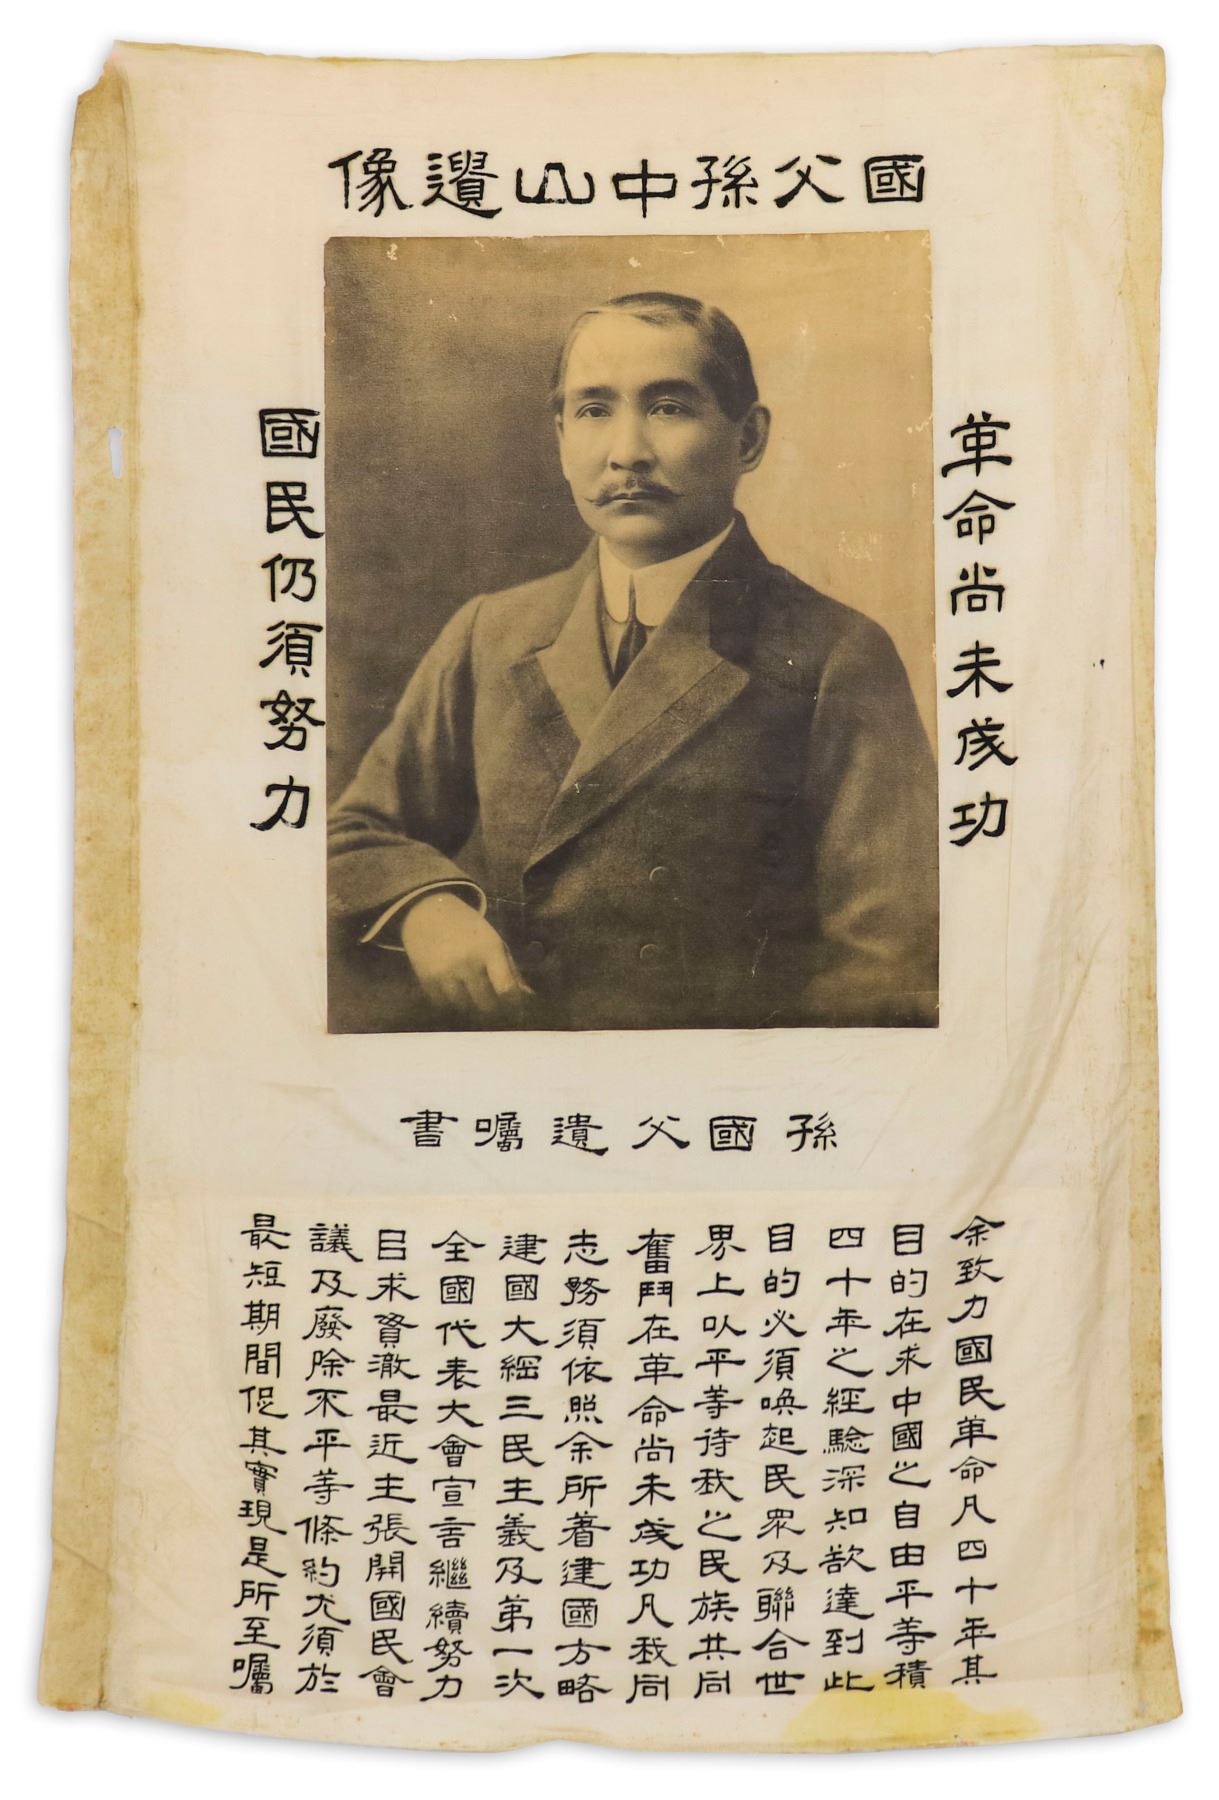 國父孫中山遺像
革命尚未成功
國民仍須努力
孫國父遺囑書
余致力國民革命凡四十年其
目的在求中國之自由平等積
四十年之經驗深知欲達到此
目的必須喚起民眾及聯合世
界上以平等待我之民族共同
奮鬥在革命尚未成功凡我同
志務須依照余所著建國方略
建國大綱三民主義及第一次
全國代表大會宣言繼續努力
㠯求貫澈最近主張開國民會
議及廢除不平等條約尤須於
最短期間促其實現是所至囑